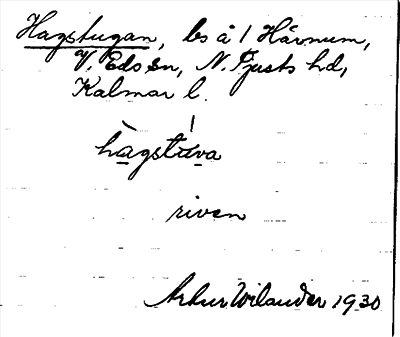 Hagstugan, bs å 1 Härnum,
V. Eds sn, N. Tjusts hd,
Kalmar l.
hagstuva
riven
Arthur Wilander 1930